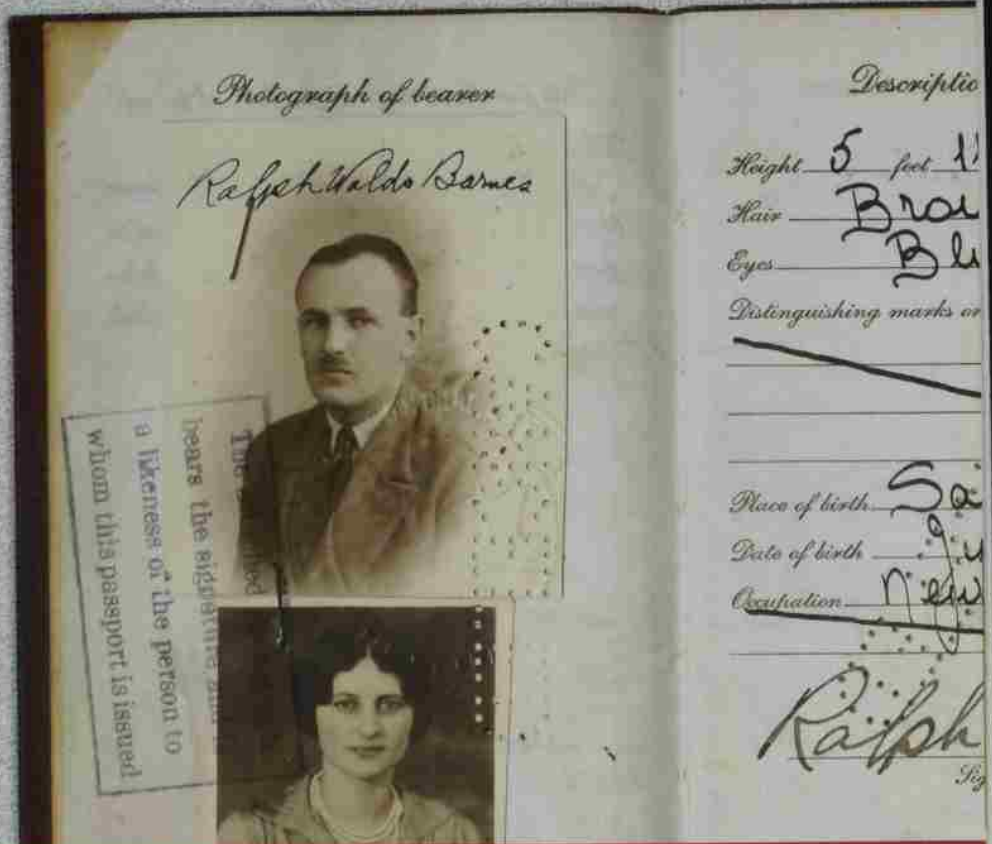 Photograph of bearer
Ralph Waldo Barnes
bears the signature and
a likeness of the person to
whom this passport is issued
Descriptio
Height 5 feet 11
Hair Brow
Eyes Blu
Distinguishing marks or
Place of birth Sa
Date of birth Ju
Occupation New
Ralph
Sig